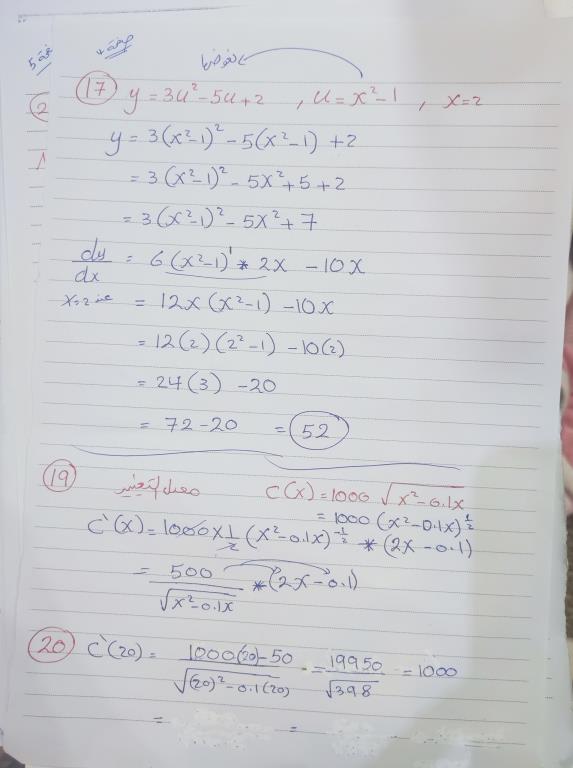 صفحة 4
صفحة 5
نعوضها
(17) y = 3u² - 5u + 2 , u = x² - 1 , x = 2
y = 3(x² - 1)² - 5(x² - 1) + 2
= 3(x² - 1)² - 5x² + 5 + 2
= 3(x² - 1)² - 5x² + 7
dy/dx = 6(x² - 1)¹ * 2x - 10x
x = 2 عند = 12x(x² - 1) - 10x
= 12(2)(2² - 1) - 10(2)
= 24(3) - 20
= 72 - 20 = 52
(19) معدل التغير C(x) = 1000 √(x² - 0.1x)
= 1000 (x² - 0.1x)^½
C`(x) = 1000 × 1/2 (x² - 0.1x)^-½ * (2x - 0.1)
= 500/√(x² - 0.1x) * (2x - 0.1)
(20) C`(20) = (1000(20) - 50)/√((20)² - 0.1(20)) = 19950/√398 = 1000
= =